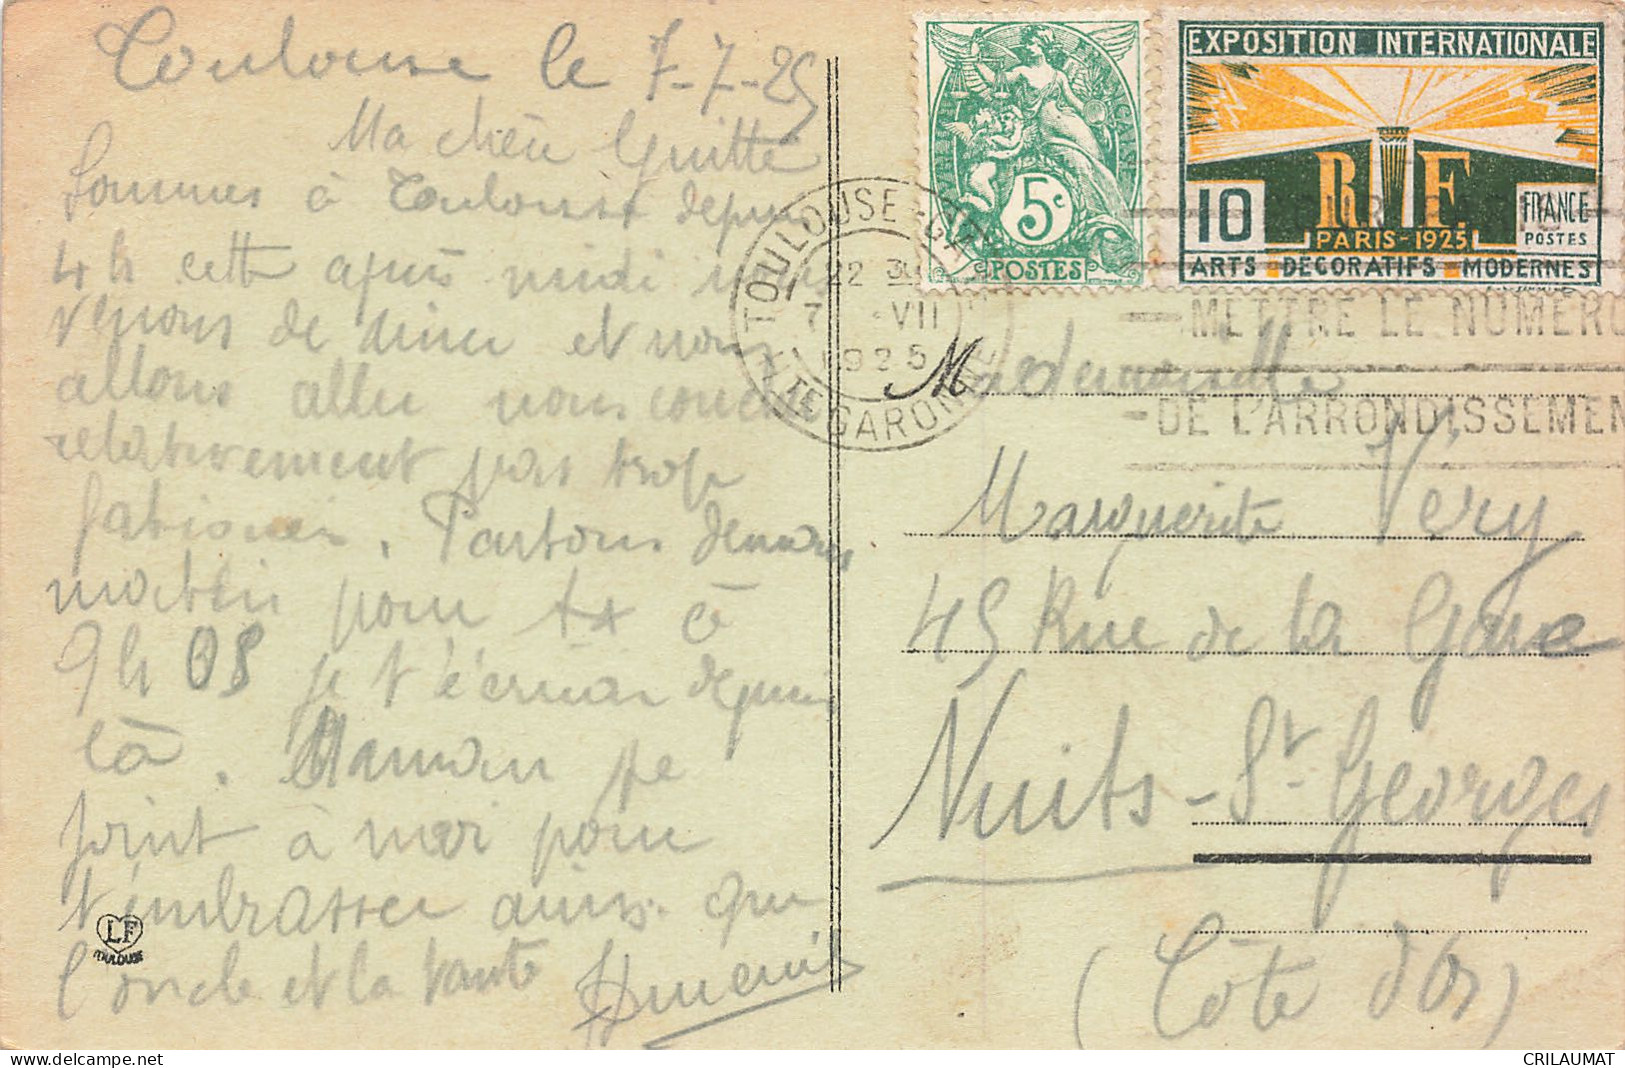 Toulouse le 7-7-25
Ma chère Guitte
Sommes à Toulouse depuis
4h cette après midi nous
venons de diner et nous
allons aller nous coucher
relativement pas trop
fatiguées. Partons demain
matin pour à
9h 08 je t'écrirai depuis
là. Maman se
joint à moi pour
t'embrasser ainsi que
l'oncle et la tante
LF
TOULOUSE
RÉPUBLIQUE FRANÇAISE
5c
POSTES
EXPOSITION INTERNATIONALE
10 R.F. FRANCE
POSTES
PARIS-1925
ARTS DECORATIFS MODERNES
TOULOUSE-GARE
22 30
7 -VII
1925
HTE GARONNE
METTRE LE NUMERO
DE L'ARRONDISSEMEN
Mademoiselle
Marguerite Very
45 Rue de la Gare
Nuits-St-Georges
(Côte d'Or)
CRILAUMAT